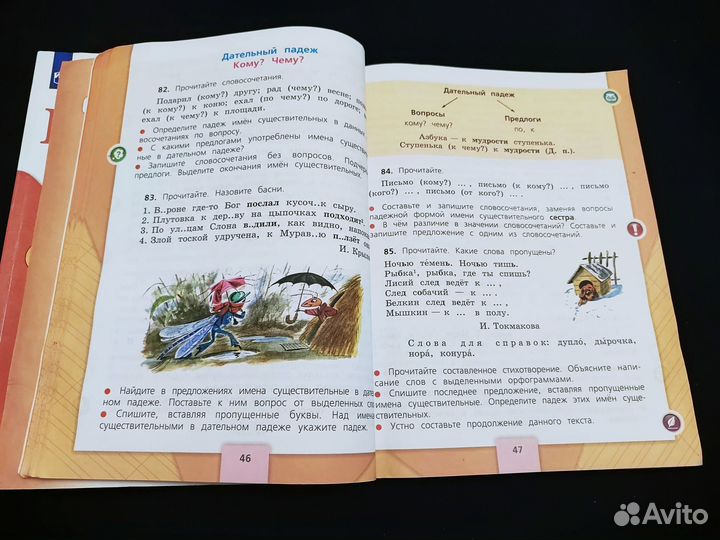 Дательный падеж
Кому? Чему?
82. Прочитайте словосочетания.
Подарил (кому?) другу; рад (чему?) весне;
(к кому?) к коню; ехал (по чему?) по дороге;
ехал (к чему?) к площади.
● Определите падеж имён существительных в данных
восочетаниях по вопросу.
● С какими предлогами употреблены имена существитель-
ные в дательном падеже?
● Запишите словосочетания без вопросов.
предлоги. Выделите окончания имён существительных.
83. Прочитайте. Назовите басни.
1. В..роне где-то Бог послал кусоч..к сыру.
2. Плутовка к дер..ву на цыпочках подходит
3. По ул..цам Слона в..дили, как видно,
4. Злой тоской удручена, к Мурав..ю п..лзёт
И.
● Найдите в предложениях имена существительные в
ном падеже. Поставьте к ним вопрос от выделенных
● Спишите, вставляя пропущенные буквы. Над
существительными в дательном падеже укажите падеж.
46
Дательный падеж
Вопросы
кому? чему?
Предлоги
по, к
Азбука — к мудрости ступенька.
Ступенька (к чему?) к мудрости (Д. п.).
84. Прочитайте.
Письмо (кому?) ... , письмо (к кому?) ... , письмо
(кого?) ... , письмо (от кого?) ... .
● Составьте и запишите словосочетания, заменяя вопросы
падежной формой имени существительного сестра.
● В чём различие в значении словосочетаний? Составьте и
запишите предложение с одним из словосочетаний.
85. Прочитайте. Какие слова пропущены?
Ночью те́мень. Ночью тишь.
Рыбка¹, рыбка, где ты спишь?
Лисий след ведёт к ... ,
След собачий — к ... ,
Белкин след ведёт к ... ,
Мышкин — к ... в полу.
И. Токмакова
Слова для справок: дупло́, ды́рочка,
нора́, конура́.
● Прочитайте составленное стихотворение. Объясните напи-
сание слов с выделенными орфограммами.
● Спишите последнее предложение, вставляя пропущенные
имена существительные. Определите падеж этих имён суще-
ствительных.
● Устно составьте продолжение данного текста.
47
Avito